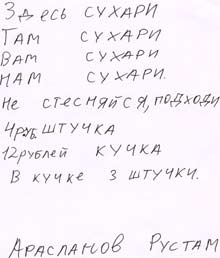 Здесь СУХАРИ
ТАМ СУХАРИ
ВАМ СУХАРИ
НАМ СУХАРИ.
Не СТЕСНЯЙСЯ, ПОДХОДИ
4 руб ШТУЧКА
12 рублей КУЧКА
В КУЧКЕ 3 ШТУЧКИ.
АРАСЛАНОВ РУСТАМ